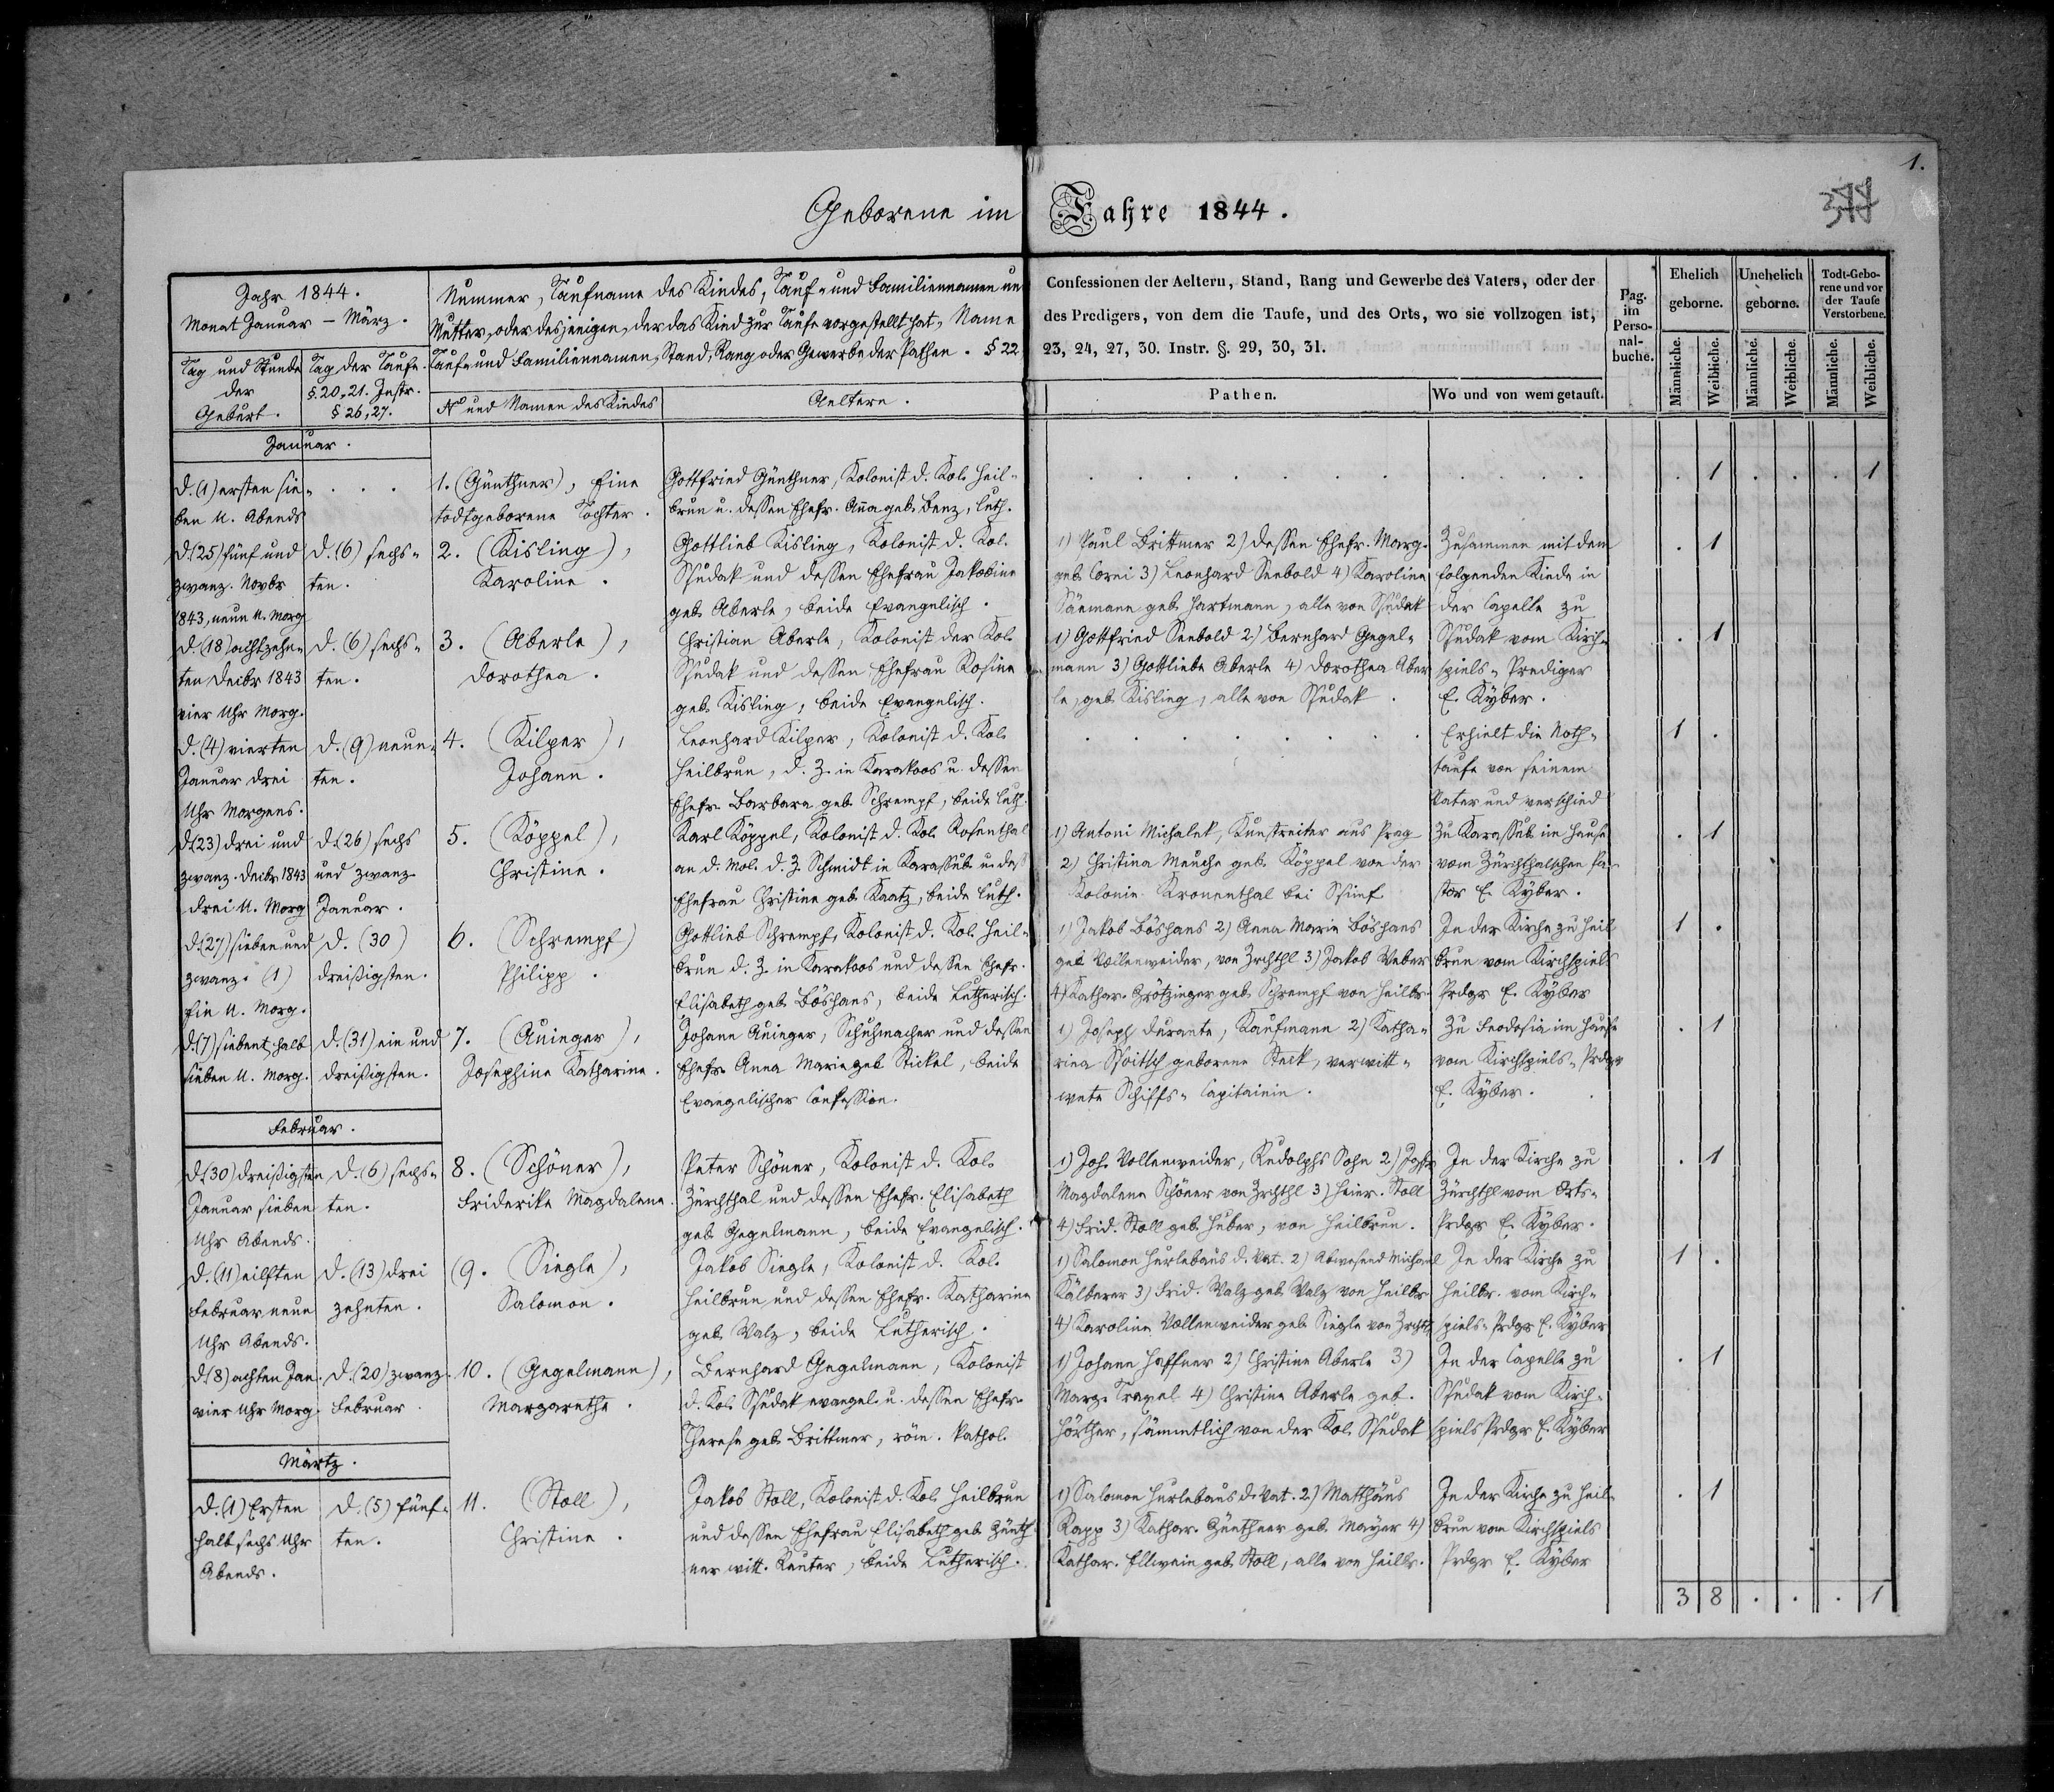 1.
377
Geborene im Jahre 1844.
Jahr 1844.
Monat Januar – März.
Nummer, Taufname des Kindes, Tauf- und Familiennamen un
Mutter, oder desjenigen, der das Kind zur Taufe vorgestellt hat, Name
Tauf- und Familiennamen, Stand, Rang oder Gewerbe der Pathen. § 22
Confessionen der Aeltern, Stand, Rang und Gewerbe des Vaters, oder der
des Predigers, von dem die Taufe, und des Orts, wo sie vollzogen ist,
23, 24, 27, 30. Instr. §. 29, 30, 31.
Pag.
im
Perso-
nal-
buche.
Ehelich
geborne.
Unehelich
geborne.
Todt-Gebo-
rene und vor
der Taufe
Verstorbene.
Tag und Stunde
der
Geburt.
Tag der Taufe.
§. 20, 21. Instr.
§ 26, 27.
No und Namen des Kindes
Aeltern.
Pathen.
Wo und von wem getauft.
Männliche.
Weibliche.
Männliche.
Weibliche.
Männliche.
Weibliche.
Januar.
d. (1) ersten sie-
ben U. Abends
1. (Günthner), Eine
todtgeborene Tochter.
Gottfried Günthner, Kolonist d. Kol. Heil-
brun u. dessen Ehefr. Anna geb. Benz, luth.
. 1 . . . 1
d. (25) fünf und
zwanz. Novbr
1843, neun U. Morg
d. (6) sechs-
ten.
2. (Kisling),
Karoline.
Gottlieb Kisling, Kolonist d. Kol.
Sudak und dessen Ehefrau Jakobine
geb. Aberle, beide Evangelisch.
1) Paul Brittner 2) dessen Ehefr. Marg.
geb. Corni 3) Leonhard Seebold 4) Karoline
Säemann geb. Hartmann, alle von Sudak
Zusammen mit dem
folgenden Kinde in
der Capelle zu
. 1
d. (18) achtzehn-
ten Decbr 1843
vier Uhr Morg.
d. (6) sechs-
ten.
3. (Aberle),
Dorothea.
Christian Aberle, Kolonist der Kol.
Sudak und dessen Ehefrau Rosine
geb. Kisling, beide Evangelisch.
1) Gottfried Seebold 2) Bernhard Gegel-
mann 3) Gottliebe Aberle 4) Dorothea Aber
le, geb. Kisling, alle von Sudak.
Sudak vom Kirch-
spiels-Prediger
E. Kyber.
. 1
d. (4) vierten
Januar drei
Uhr Morgens.
d. (9) neun-
ten.
4. (Kilper),
Johann.
Leonhard Kilper, Kolonist d. Kol.
Heilbrun, d. Z. in Karakoos u. dessen
Ehefr. Barbara geb. Schrempf, beide luth.
Erhielt die Noth-
taufe von seinem
Vater und verschied
1 .
d. (23) drei und
zwanz. Decbr 1843
drei U. Morg
d. (26) sechs
und zwanz.
Januar.
5. (Köppel),
Christine.
Karl Köppel, Kolonist d. Kol. Rosenthal
an d. Mol. d. Z. Schmidt in Karassub. u. dess
Ehefrau Christine geb. Kaatz, beide luth.
1) Antoni Michalek, Kunstreiter aus Prag
2) Christina Meuche geb. Köppel von der
Kolonie Kronenthal bei Simf
Zu Karassub. im Hause
vom Zürchthalschen Pa-
stor E. Kyber.
. 1
d. (27) sieben und
zwanz. (1)
Ein U. Morg.
d. (30)
dreißigsten.
6. (Schrempf)
Philipp.
Gottlieb Schrempf, Kolonist d. Kol. Heil-
brun d. Z. in Karakoos und dessen Ehefr.
Elisabeth geb. Böshans, beide Lutherisch.
1) Jakob Böshans 2) Anna Marie Böshans
geb. Vollenweider, von Zrchthl 3) Jakob Weber
4) Kathar. Grötzinger geb. Schrempf von Heilbr.
In der Kirche zu Heil
brun vom Kirchspiels
Prdgr E. Kyber
1 .
d. (7) siebent. halb
sieben U. Morg.
d. (31) ein und
dreißigsten.
7. (Auinger),
Josephine Katharine.
Johann Auinger, Schuhmacher und dessen
Ehefr. Anna Marie geb. Stickel, beide
Evangelischer Confession.
1) Joseph Durante, Kaufmann 2) Katha-
rina geborene Steck, verwitt-
wete Schiffs-Capitainin.
Zu Feodosia im Hause
vom Kirchspiels-Prdgr
E. Kyber.
. 1
Februar.
d. (30) dreißigsten
Januar sieben
Uhr Abends.
d. (6) sechs-
ten.
8. (Schöner),
Friderike Magdalena.
Peter Schöner, Kolonist d. Kol.
Zürchthal und dessen Ehefr. Elisabeth
geb. Gegelmann, beide Evangelisch.
1) Joh. Vollenweider, Rudolphs Sohn 2)
Magdalena Schöner von Zrchthl 3) Heinr. Stoll
4) Frid. Stoll geb. Huber, von Heilbrun.
In der Kirche zu
Zürchthl vom Orts-
Prdgr E. Kyber.
. 1
d. (11) eilften
Februar neun
Uhr Abends.
d. (13) drei
zehnten.
(9. (Siegle),
Salomon.
Jakob Siegle, Kolonist d. Kol.
Heilbrun und dessen Ehefr. Katharine
geb. Walz, beide Lutherisch.
1) Salomon Hurlebaus d. Vat. 2) Abwesend Michael
Kälberer 3) Frid. Walz geb. Walz von Heilbr
4) Karoline Vollenweider geb. Siegle von Zrchth
In der Kirche zu
Heilbr. vom Kirch-
spiels-Prdgr E. Kyber
1 .
d. (8) achten Jan.
vier Uhr Morg.
d. (20) zwanz.
Februar
10. (Gegelmann),
Margarethe.
Bernhard Gegelmann, Kolonist
d. Kol. Sudak evangel. u. dessen Ehefr.
Therese geb. Brittner, röm. kathol.
1) Johann Haffner 2) Christine Aberle 3)
Marg. Trexel 4) Christine Aberle geb.
Hörther, sämmtlich von der Kol. Sudak
In der Capelle zu
Sudak vom Kirch-
spiels Prdgr E. Kyber
. 1
Märtz.
d. (1) Ersten
halb sechs Uhr
Abends.
d. (5) fünf-
ten.
11. (Stoll),
Christine.
Jakob Stoll, Kolonist d. Kol. Heilbrun
und dessen Ehefrau Elisabeth geb. Günth-
ner witt. Reuter, beide Lutherisch.
1) Salomon Hurlebaus d. Vat. 2) Matthäus
Rapp 3) Kathar. Günthner geb. Mayer 4)
Kathar. Ellwein geb. Stoll, alle von Heilbr.
In der Kirche zu Heil-
brun vom Kirchspiels
Prdgr E. Kyber
. 1
3 8 . . . 1